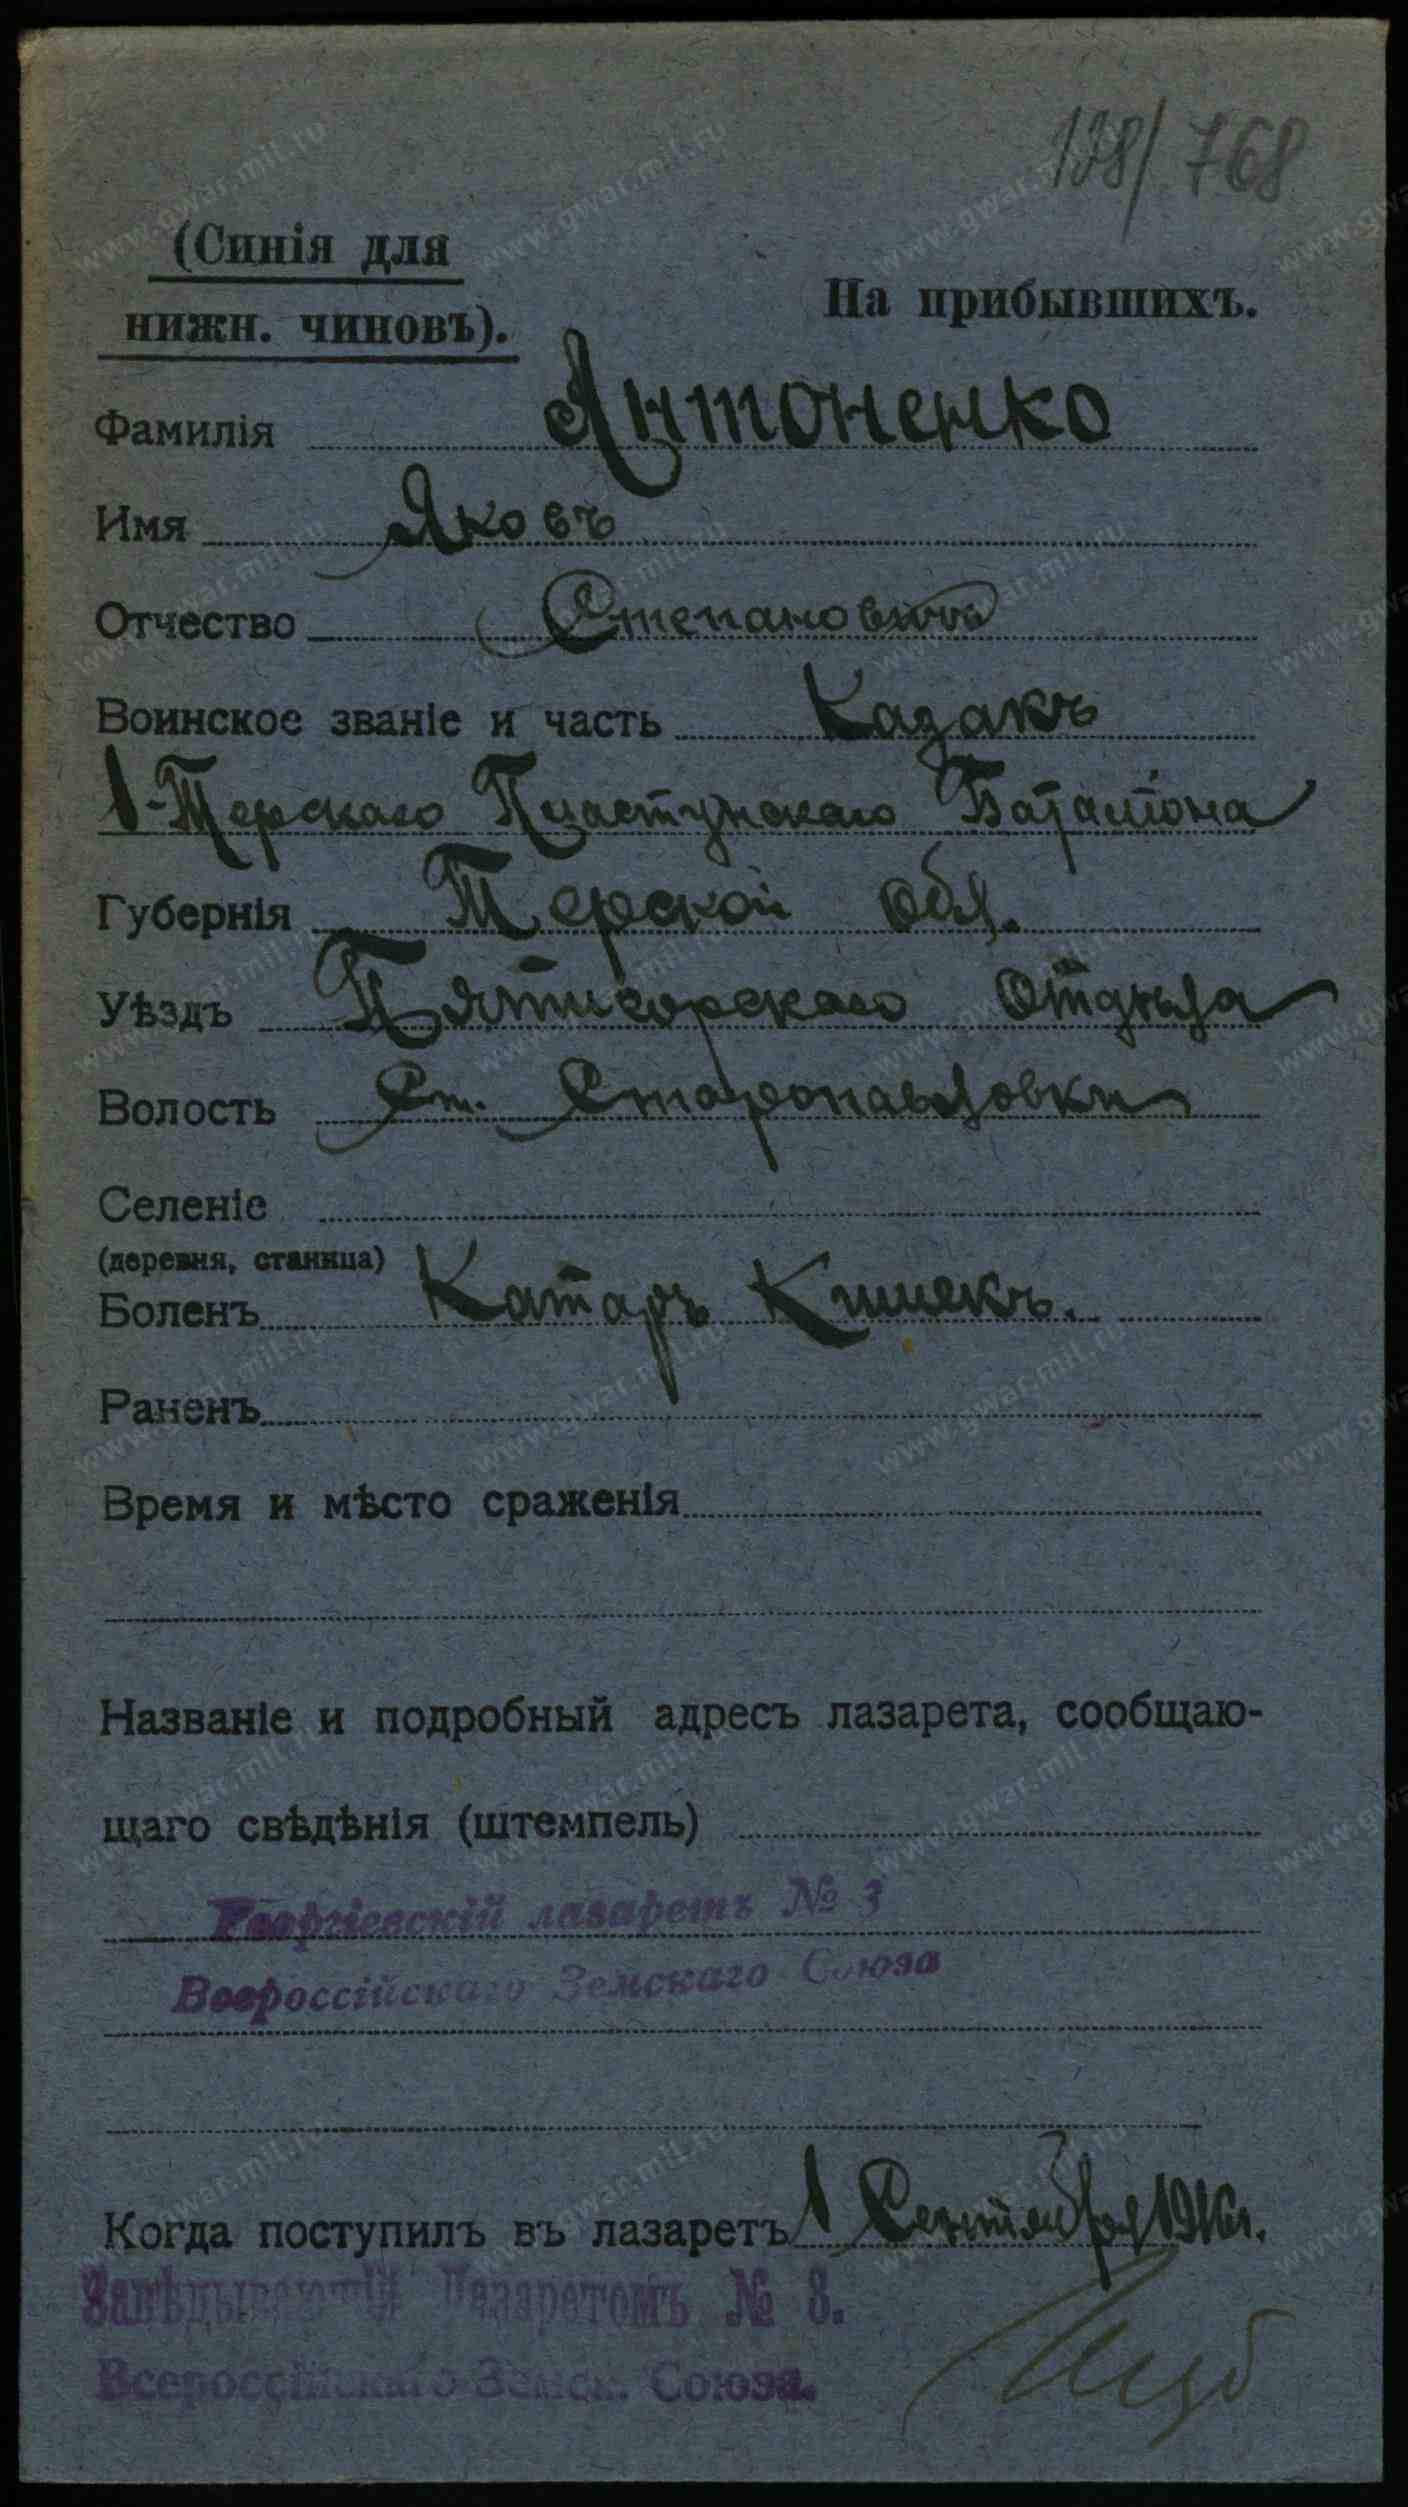 138/768
(Синія для
нижн. чиновъ).
На прибывшихъ.
Фамилія Антоненко
Имя Яковъ
Отчество Степановичъ
Воинское званіе и часть Казакъ
1-Терскаго Пластунскаго Баталіона
Губернія Терской обл.
Уѣздъ Пятигорскаго Отдѣла
Волость Ст. Старопавловки
Селеніе
(деревня, станица)
Боленъ Катаръ Кишекъ.
Раненъ
Время и мѣсто сраженія
Названіе и подробный адресъ лазарета, сообщаю-
щаго свѣдѣнія (штемпель)
Георгіевскій лазаретъ № 3
Всероссійскаго Земскаго Союза
Когда поступилъ въ лазаретъ 1 Сентября 1916г.
Завѣдывающій Лазаретомъ № 3.
Всероссійскаго Земск. Союза.
www.gwar.mil.ru